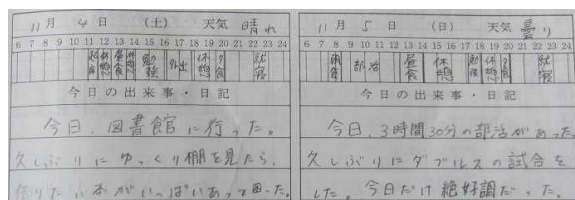 11月 4日 (土) 天気 晴れ
6 7 8 9 10 11 12 13 14 15 16 17 18 19 20 21 22 23 24
朝食 休憩 昼食 休憩 勉強 外出 休憩 夕食 就寝
今日の出来事・日記
今日、図書館に行った。
久しぶりにゆっくり棚を見たら、
借りたい本がいっぱいあって困った。
11月 5日 (日) 天気 曇り
6 7 8 9 10 11 12 13 14 15 16 17 18 19 20 21 22 23 24
朝食 部活 昼食 休憩 勉強 休憩 夕食 就寝
今日の出来事・日記
今日、3時間30分の部活があった。
久しぶりにダブルスの試合を
した。今日だけ絶好調だった。